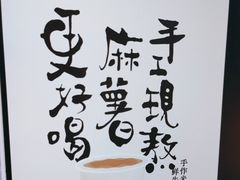 手工現熬
麻薯
更好喝
手作
鮮